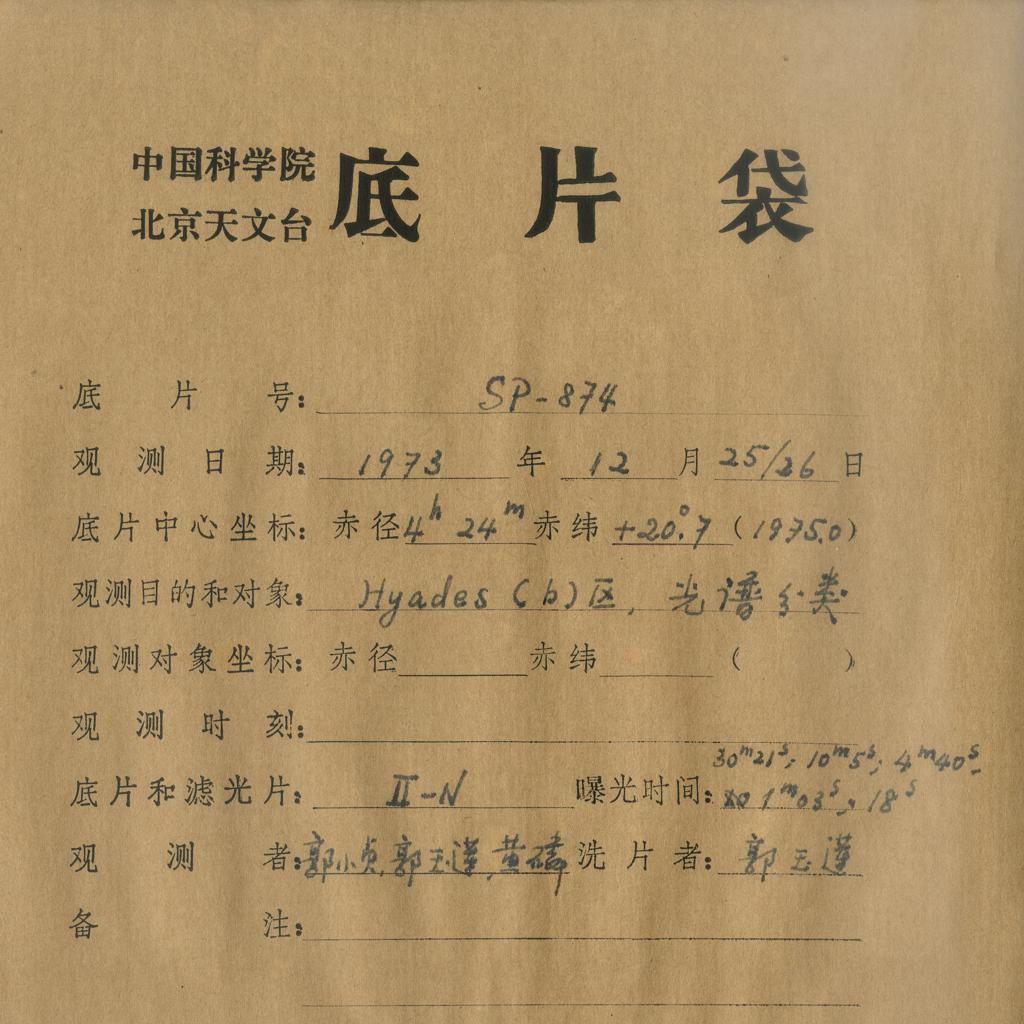 中国科学院
北京天文台
底片袋
底片号: SP-874
观测日期: 1973 年 12 月 25/26 日
底片中心坐标: 赤径 4h 24m 赤纬 +20°.7 (1975.0)
观测目的和对象: Hyades (b)区, 光谱分类
观测对象坐标: 赤径 赤纬 ( )
观测时刻:
30m21s; 10m5s; 4m40s.
底片和滤光片: II-N 曝光时间: 1m03s, 18s
观测者: 郭小贞, 郭玉莲, 黄磷 洗片者: 郭玉莲
备注: